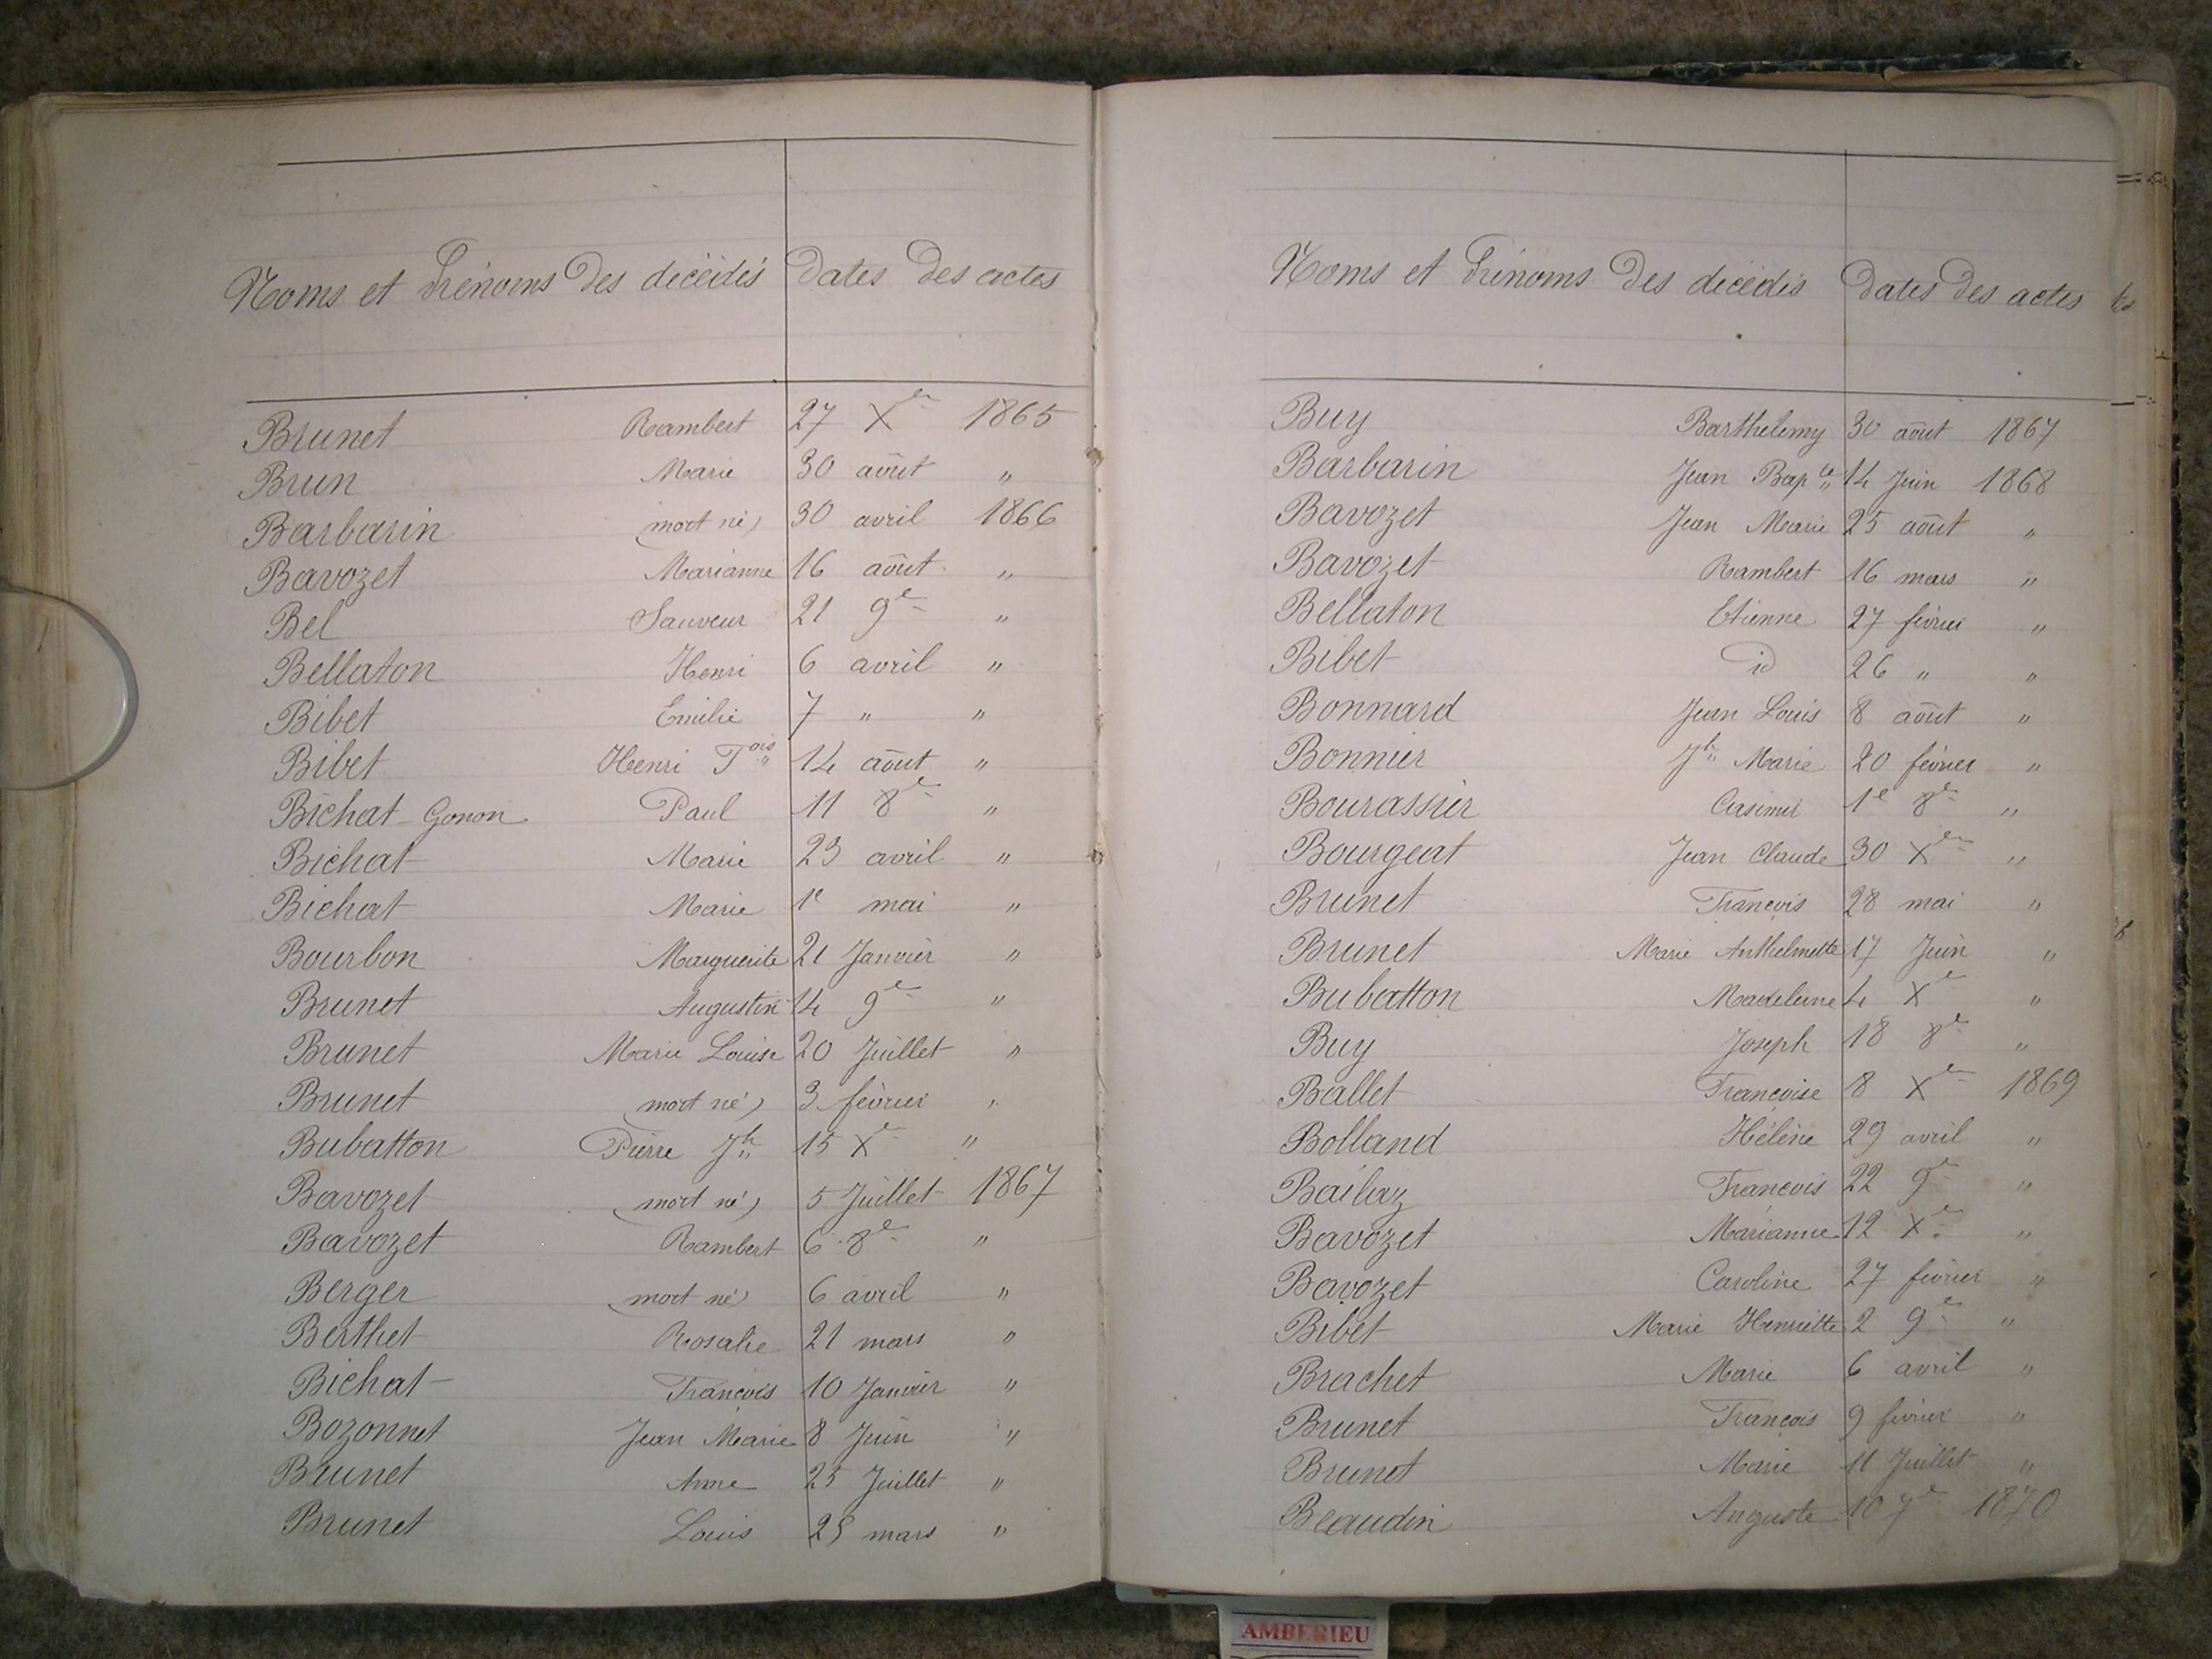 Noms et Prénoms des décédés Dates des actes
Brunet Rambert 27 Xer 1865
Brun Marie 30 août "
Barbarin (mort né) 30 avril 1866
Bavozet Marianne 16 août "
Bel Sauveur 21 9e "
Bellaton Henri 6 avril "
Bibet Emilie 7 " "
Bibet Henri Fois 14 août "
Bichat-Gonon Paul 11 8e "
Bichat Marie 23 avril "
Bichat Marie 1e mai "
Bourbon Marguerite 21 Janvier "
Brunet Augustin 14 9e "
Brunet Marie Louise 20 Juillet "
Brunet (mort né) 3 février "
Bubatton Pierre Jh 15 Xe "
Bavozet (mort né) 5 Juillet 1867
Bavozet Rambert 6 8e "
Berger (mort né) 6 avril "
Berthet Rosalie 21 mars "
Bichat François 10 Janvier "
Bozonnet Jean Marie 8 Juin "
Brunet Anne 25 Juillet "
Brunet Louis 25 mars "
Noms et Prénoms des décédés Dates des actes
Buy Barthélemy 30 août 1867
Barbarin Jean Bapte 14 Juin 1868
Bavozet Jean Marie 25 août "
Bavozet Rambert 16 mars "
Bellaton Etienne 27 février "
Bibet id 26 " "
Bonnard Jean Louis 8 août "
Bonnier Jh Marie 20 février "
Bourassier Casimir 1e 8e "
Bourgeat Jean Claude 30 Xer "
Brunet François 28 mai "
Brunet Marie Anthelmette 17 Juin "
Bubatton Madeleine 4 Xe "
Buy Joseph 18 8e "
Ballet Françoise 8 Xe 1869
Bolland Hélène 29 avril "
Bailaz François 22 9e "
Bavozet Marianne 12 Xe "
Bavozet Caroline 27 février "
Bibet Marie Henriette 2 9e "
Brachet Marie 6 avril "
Brunet François 9 février "
Brunet Marie 11 Juillet "
Beaudin Auguste 10 7e 1870
AMBERIEU